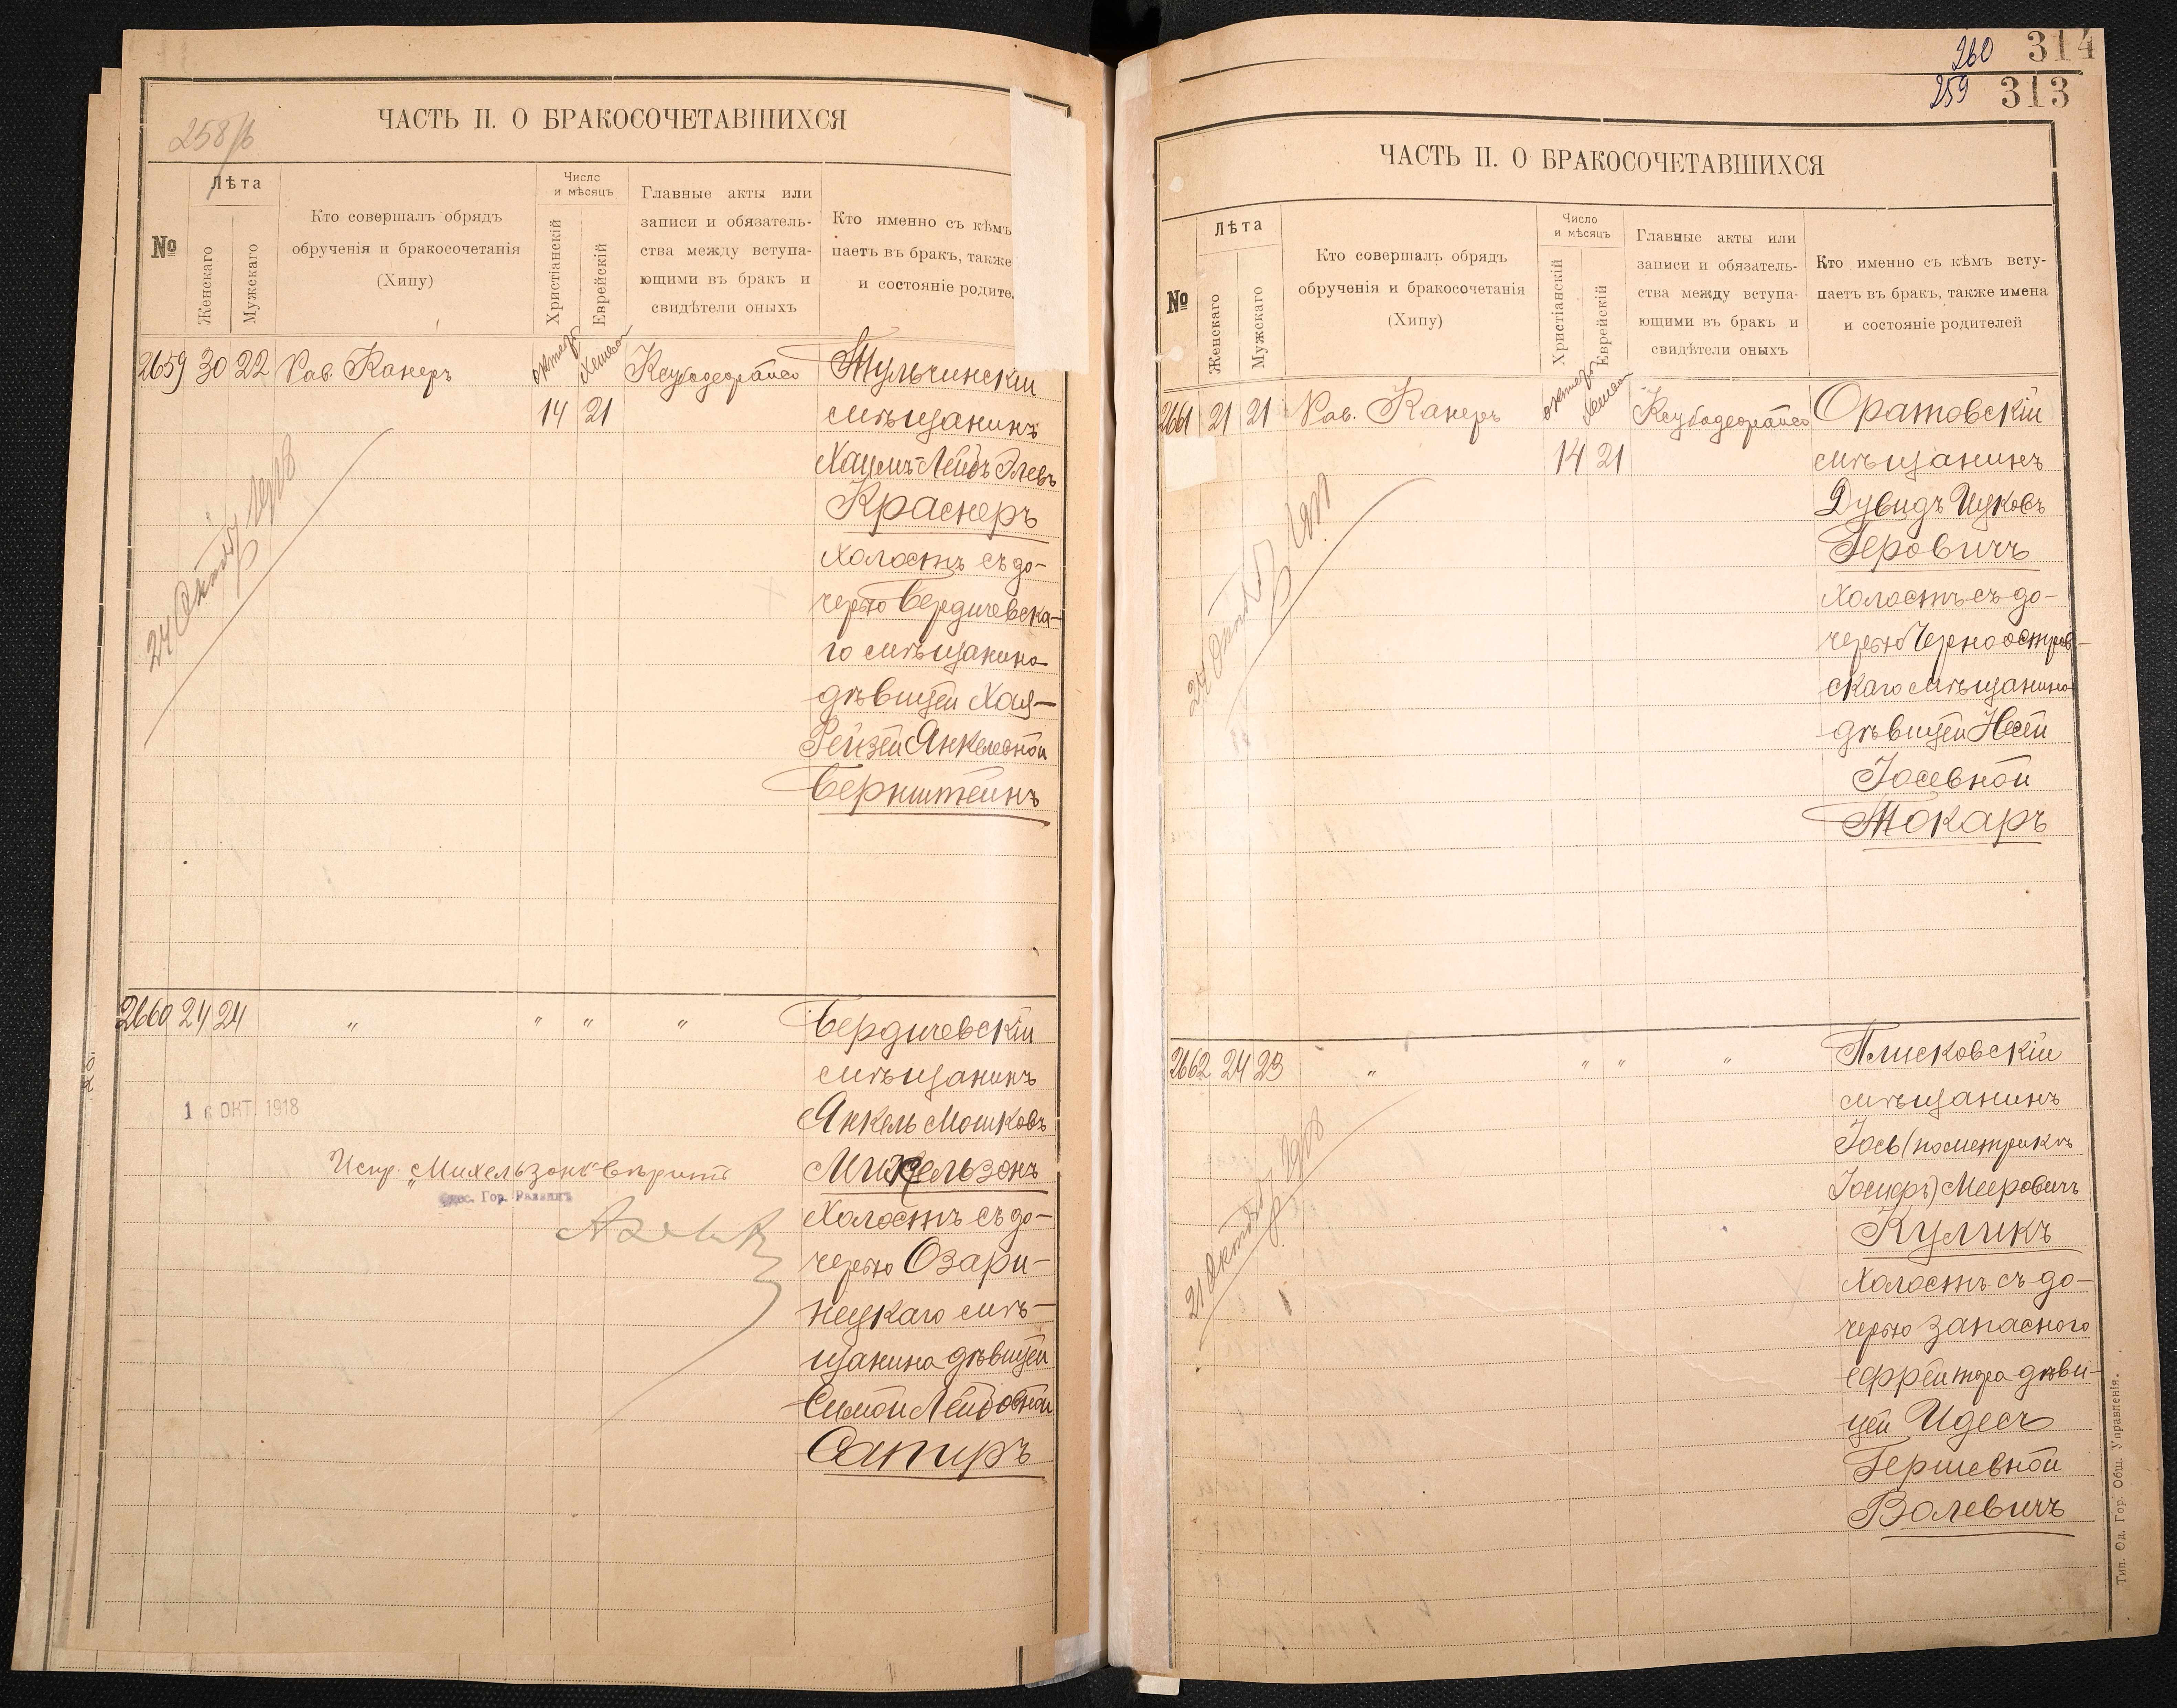 258/б
ЧАСТЬ II. О БРАКОСОЧЕТАВШИХСЯ
№
Лѣта
Женскаго
Мужескаго
Кто совершалъ обрядъ
обрученія и бракосочетанія
(Хипу)
Число
и мѣсяцъ
Христіанскій
Еврейскій
Главные акты или
записи и обязатель-
ства между вступа-
ющими въ бракъ и
свидѣтели оныхъ
Кто именно съ кѣмъ
паетъ въ бракъ, также
и состояніе родите
2659 30 22 Рав. Канеръ
14 21
Тульчинскій
мѣщанинъ
Хаимъ-Лейбъ Элевъ
Краснеръ
холостъ съ до-
черью Бердичевска-
го мѣщанина
дѣвицей Хая-
Рейзей Янкелевной
Бернштейнъ
2660 24 24 " " " "
Бердичевскій
мѣщанинъ
Янкель Мошковъ
Михельзонъ
холостъ съ до-
черью Озари-
нецкаго мѣ-
щанина дѣвицей
Симой Лейбовной
Сапиръ
ОКТ. 1918
Испр. "Михельзонъ" вѣрить
Одес. Гор. Раввинъ
260 314
259 313
ЧАСТЬ II. О БРАКОСОЧЕТАВШИХСЯ
№
Лѣта
Женскаго
Мужскаго
Кто совершалъ обрядъ
обрученія и бракосочетанія
(Хипу)
Число
и мѣсяцъ
Христіанскій
Еврейскій
Главные акты или
записи и обязатель-
ства между вступа-
ющими въ бракъ и
свидѣтели оныхъ
Кто именно съ кѣмъ всту-
паетъ въ бракъ, также имена
и состояніе родителей
2661 21 21 Рав. Канеръ
14 21
Оратовскій
мѣщанинъ
Дувидъ Ицковъ
Геровичъ
холостъ съ до-
черью Черноостров-
скаго мѣщанина
дѣвицей Несей
Іосевной
Токаръ
2662 24 23 " " " "
Плисковскій
мѣщанинъ
Іось (по метрикѣ
Іосифъ) Мееровичъ
Куликъ
холостъ съ до-
черью запасного
ефрейтора дѣви-
цей Идесъ
Гершевной
Волевичъ
Тип. Од. Гор. Общ. Управленія.